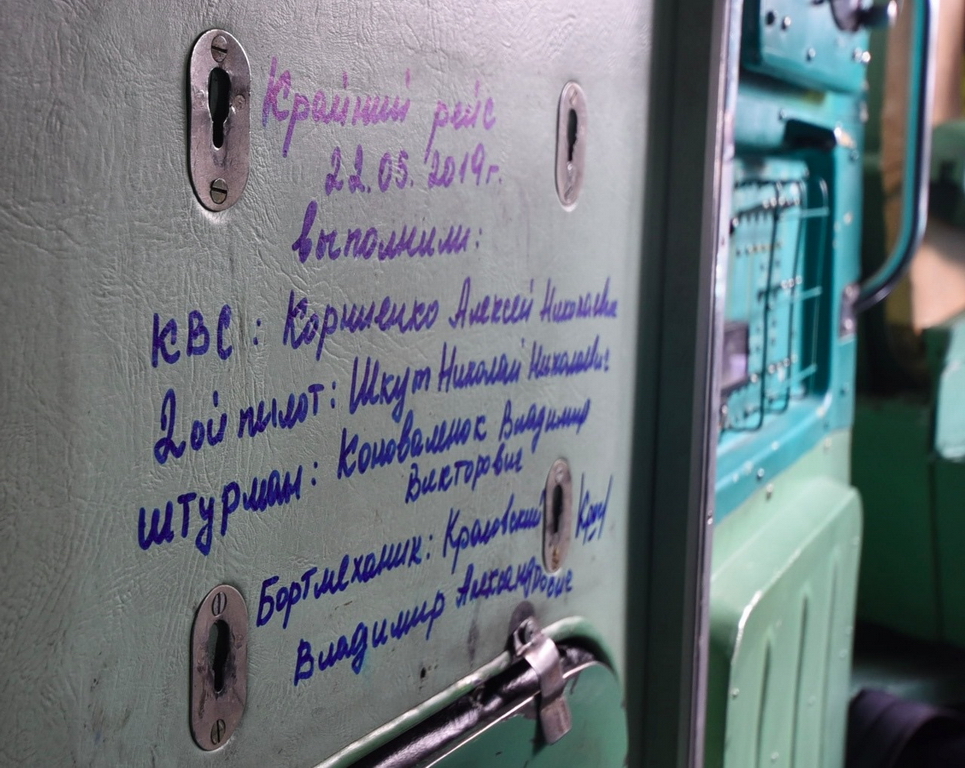 Крайний рейс
22.05.2019г.
выполнили:
КВС: Корниенко Алексей Николаевич
2ой пилот: Шкут Николай Николаевич
штурман: Коноваленок Владимир
Викторович
Бортмеханик: Краловский
Владимир Александрович